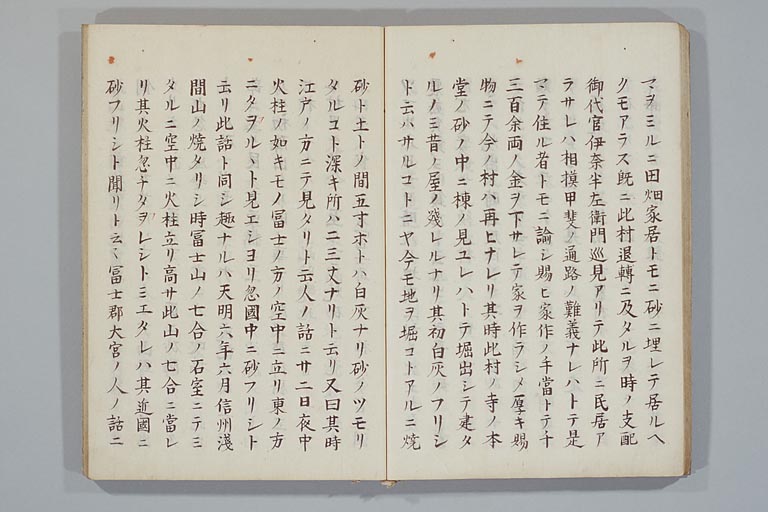 マヲミルニ田畑家居トモニ砂ニ埋レテ居ルヘ
クモアラス既ニ此村退轉ニ及タルヲ時ノ支配
御代官伊奈半左衛門巡見アリテ此所ニ民居ア
ラサレハ相摸甲斐ノ通路ノ難義ナレハトテ是
マテ住ル者トモニ諭シ賜ヒ家作ノ手當トテ千
三百余両ノ金ヲ下サレテ家ヲ作ラシメ厚キ賜
物ニテ今ノ村ハ再ヒナレリ其時此村ノ寺ノ本
堂ノ砂ノ中ニ棟ノ見ユレハトテ堀出シテ建タ
ルノミ昔ノ屋ノ殘レルナリ其初白灰ノフリシ
ト云ハサルコトニヤ今モ地ヲ堀コトアルニ焼
砂ト土トノ間五寸ホトハ白灰ナリ砂ノツモリ
タルコト深キ所ハ二三丈ナリト云リ又曰其時
江戸ノ方ニテ見タリト云人ノ話ニ廿二日夜中
火柱ノ如キモノ冨士ノ方ノ空中ニ立リ東ノ方
ニタヲルヽト見エシヨリ忽國中ニ砂フリシト
云リ此話ト同シ趣ナルハ天明六年六月信州淺
間山ノ焼タリシ時冨士山ノ七合ノ石室ニテミ
タルニ空中ニ火柱立リ高サ此山ノ七合ニ當レ
リ其火柱忽チタヲレシトミエタレハ其近國ニ
砂フリシト聞リト云〻冨士郡大宮ノ人ノ話ニ